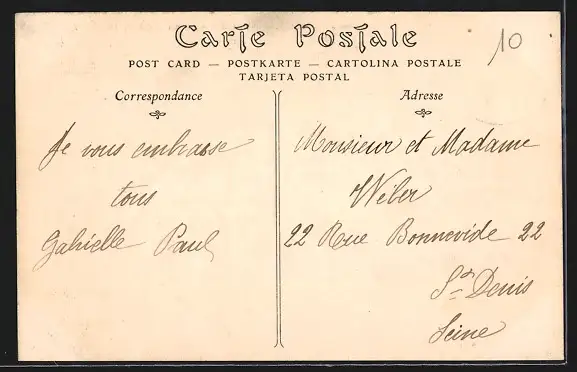 Carte Postale
10
POST CARD — POSTKARTE — CARTOLINA POSTALE
TARJETA POSTAL
Correspondance
Je vous embrasse
tous
Gabrielle Paul
Adresse
Monsieur et Madame
Weber
22 Rue Bonnevide 22
St Denis
Seine